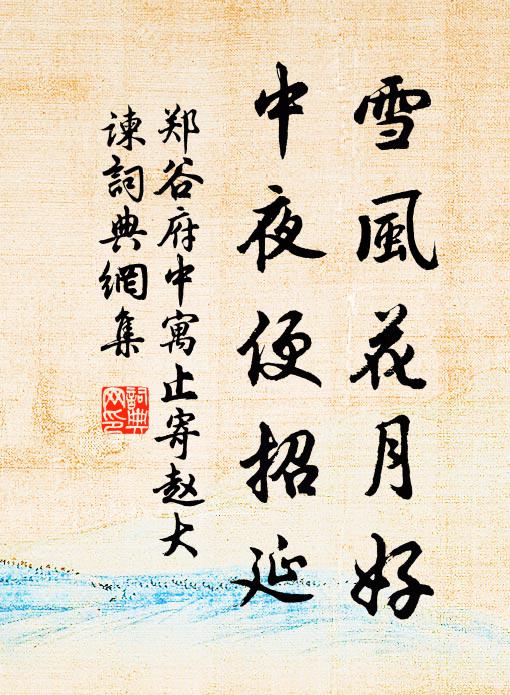 雪風花月好
中夜便招延
郑谷府中寓止寄赵大
諫詞典網集
詞典
网印